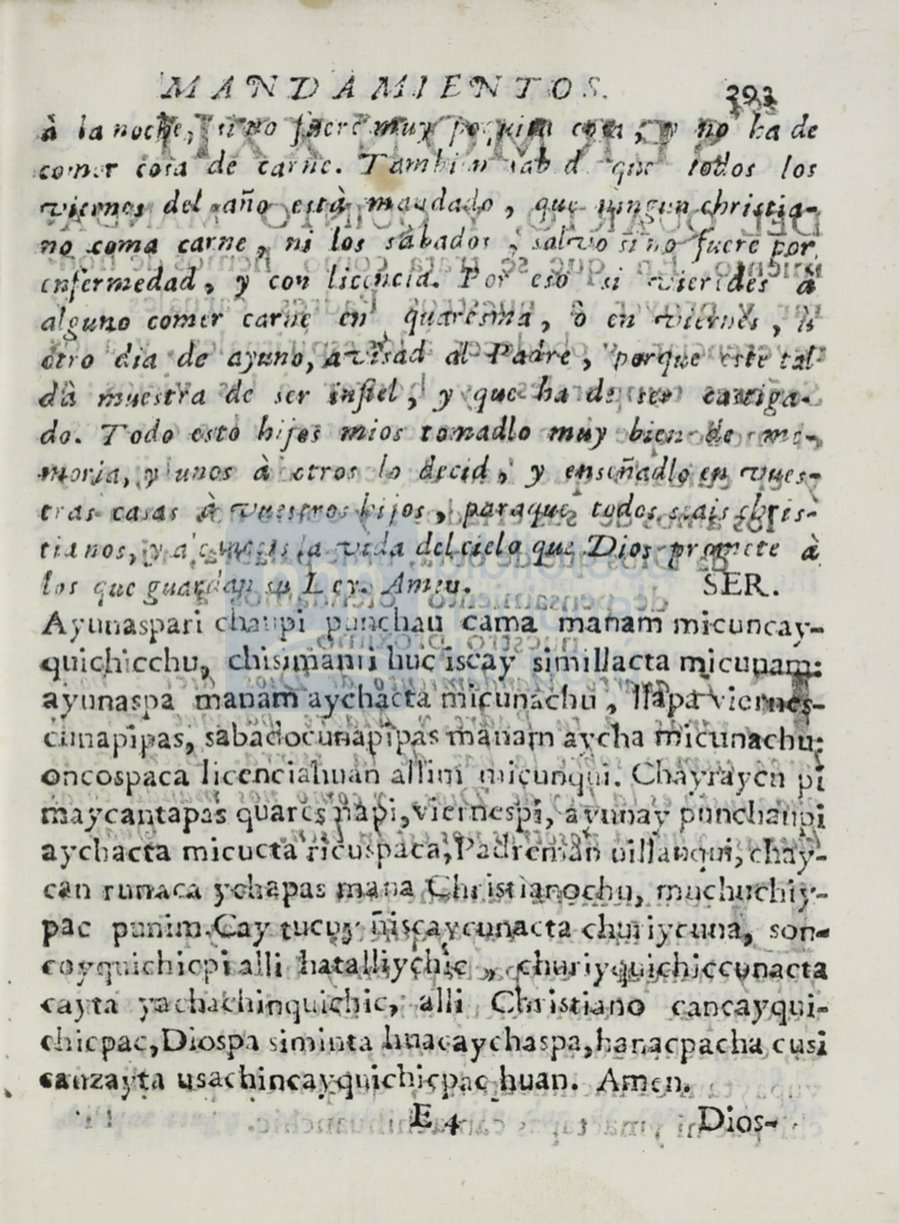 MANDAMIENTOS. 203
à la noche, si no fuere muy poquita cosa, y no ha de
comer cosa de carne. Tambien sab d que todos los
viernes del año està mandado, que ningun christia-
no coma carne, ni los sabados, salvo si no fuere por
enfermedad, y con licencia. Por eso si vieredes à
alguno comer carne en quaresma, ò en viernes, ù
otro dia de ayuno, avisad al Padre, porque este tal
dà muestra de ser infiel, y que ha de ser castiga-
do. Todo esto hijos mios tomadlo muy bien de me-
moria, y unos à otros lo decid, y enseñadlo en vues-
tras casas à vuestros hijos, paraque todos seais chris-
tianos, y a la vida del cielo que Dios promete à
los que guardan su Ley. Amen. SER.
Ayunaspari chaupi punchau cama manam micuncay-
quichicchu, chisimanta huc iscay simillacta micunam:
ayunaspa manam aychacta micunachu, llapa viernes-
cunapipas, sabadocunapipas manam aycha micunachu:
oncospaca licenciahuan allim micunqui. Chayraycu pi
maycantapas quaresmapi, viernespi, ayunay punchaupi
aychacta micucta ricuspaca, Padreman uillanqui, chay-
can runaca ychapas mana Christianochu, muchuchiy-
pac punim. Cay tucuy ñiscaycunacta churiycuna, son-
coyquichicpi alli hatalliychic, churiyquichiccunacta
cayta yachachinquichic, alli Christiano cancayqui-
chicpac, Diospa siminta huacaychaspa, hanacpacha cusi
cauzayta usachincayquichicpac huan. Amen.
E 4 Dios-